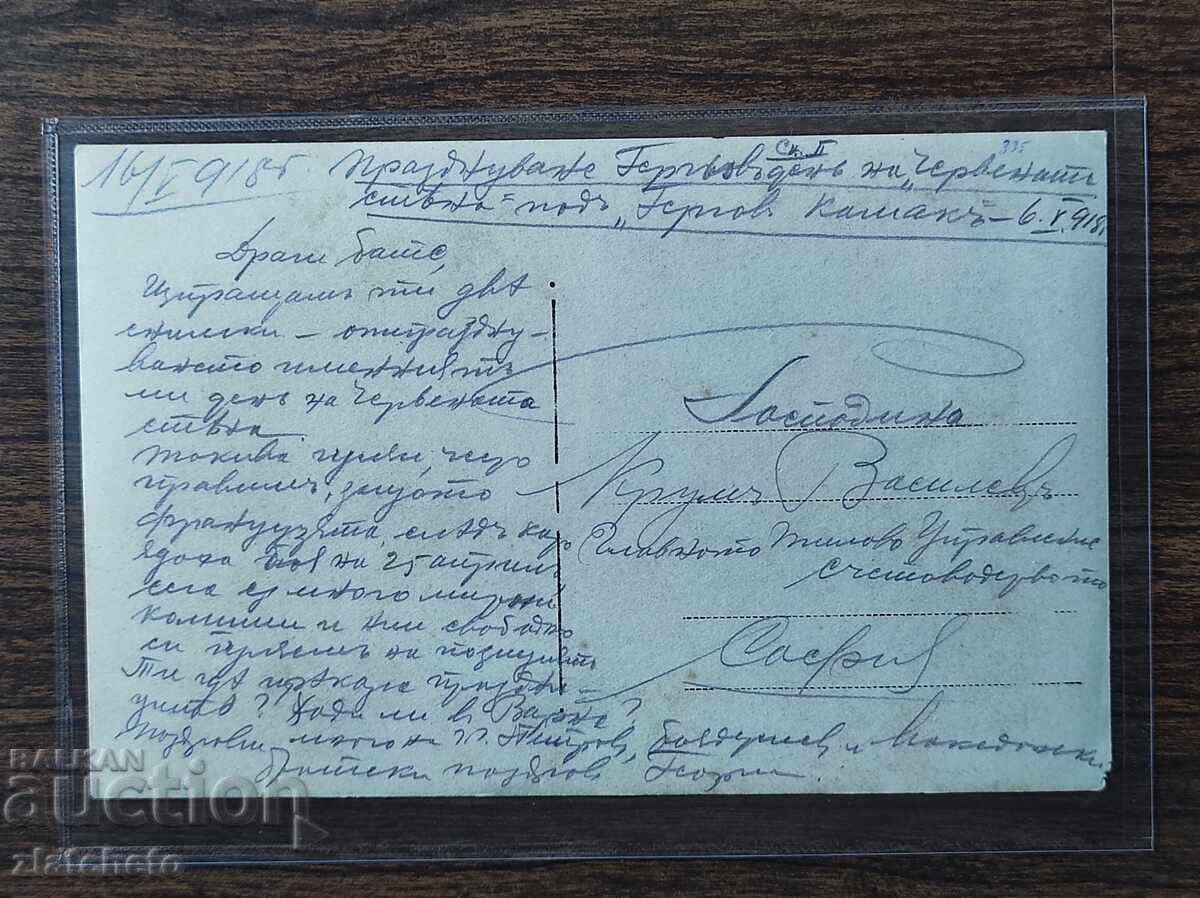 16/V 918 г. Празднуване Гергьовъ день на „Червената
Ск. II
335
стѣна“ подъ „Гергов. Камакъ“ – 6.V.918г.
Драги бате,
Изпращамъ ти двѣ
снимки – отпразну-
ването именния
ми день на Червената
стѣна.
Такива
правимъ, защото
французитѣ, следъ като
ядоха боя на 25 априлъ
сега сѫ много мирни
и ний свободно
си на позицията
Ти где прекара праздни-
цитѣ? Ходи ли въ Варна?
Поздрави много на Г. Петров, и Македонски
Братски поздрав Георги.
Господина
Крумъ Василевъ
Главното Тилово Управление
Счетоводството
София
BALKAN
auction
zlatcheto